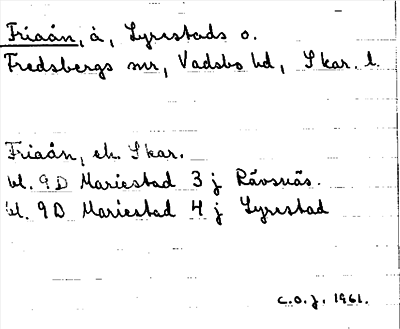 Friaån, å, Lyrestads o.
Fredsbergs snr, Vadsbo hd, Skar. l.
Friaån, ek. Skar.
bl. 9D Mariestad 3 j Rävsnäs.
bl. 9D Mariestad 4 j Lyrestad
C.O.J. 1961.